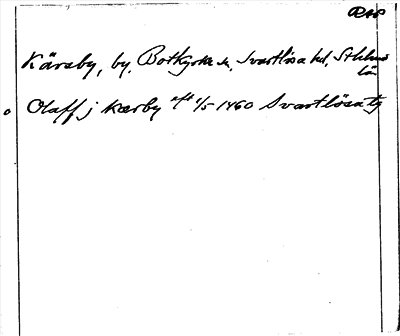 Kärsby, by, Botkyrka sn, Svartlösa hd, Sthlms
län
Olaff j Kærby aft 1/5 1460 Svartlösa tg